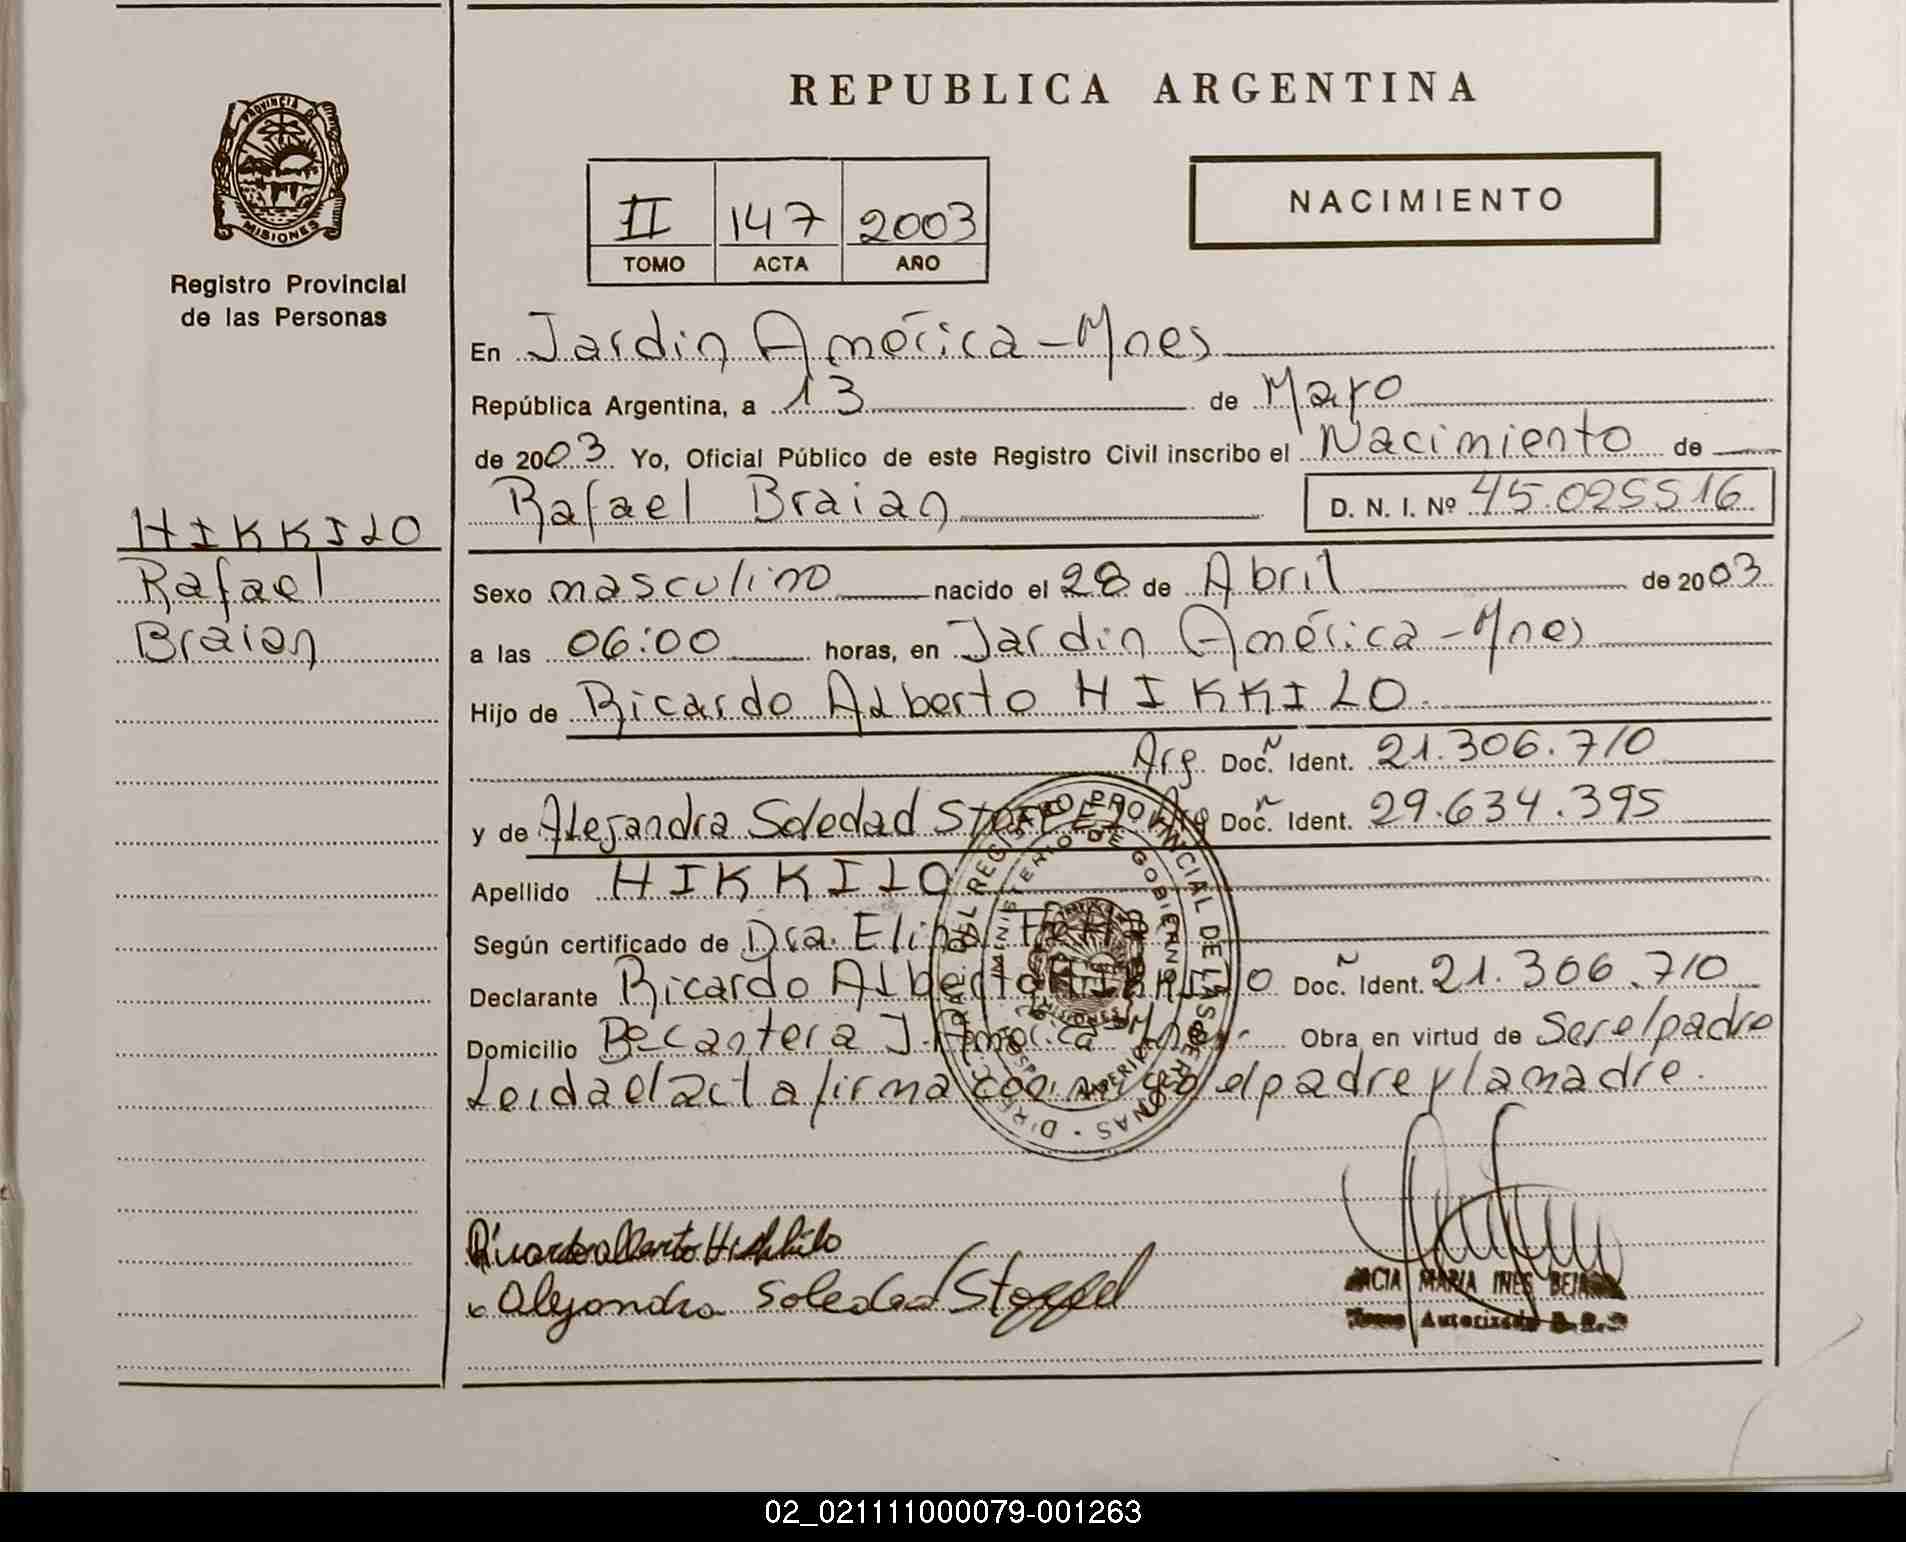 REPUBLICA ARGENTINA
PROVINCIA DE
MISIONES
Registro Provincial
de las Personas
II 147 2003
TOMO ACTA AÑO
NACIMIENTO
En Jardin América - Mnes
República Argentina, a 13 de Mayo
de 2003 Yo, Oficial Público de este Registro Civil inscribo el Nacimiento de
Rafael Braian D. N. I. Nº 45.025516
HIKKILO
Rafael
Braian
Sexo masculino nacido el 28 de Abril de 2003
a las 06:00 horas, en Jardin América - Mnes
Hijo de Ricardo Alberto HIKKILO
Arg. Doc. Ident. 21.306.710
y de Alejandra Soledad STOPPEL Arg Doc. Ident. 29.634.395
Apellido HIKKILO
Según certificado de Dra. Elina
Declarante Ricardo Alberto HIKKILO Doc. Ident. 21.306.710
Domicilio Bº Cantera J. América - Mnes Obra en virtud de Ser el padre
Leida el acta firma conmigo el padre y la madre.
DIREC. GRAL. DEL REGISTRO PROVINCIAL DE LAS PERSONAS
MINISTERIO DE GOBIERNO
MISIONES
Ricardo alberto Hikkilo
Alejandra Soledad Stoppel
MARIA INES
Autorizado
02_021111000079-001263